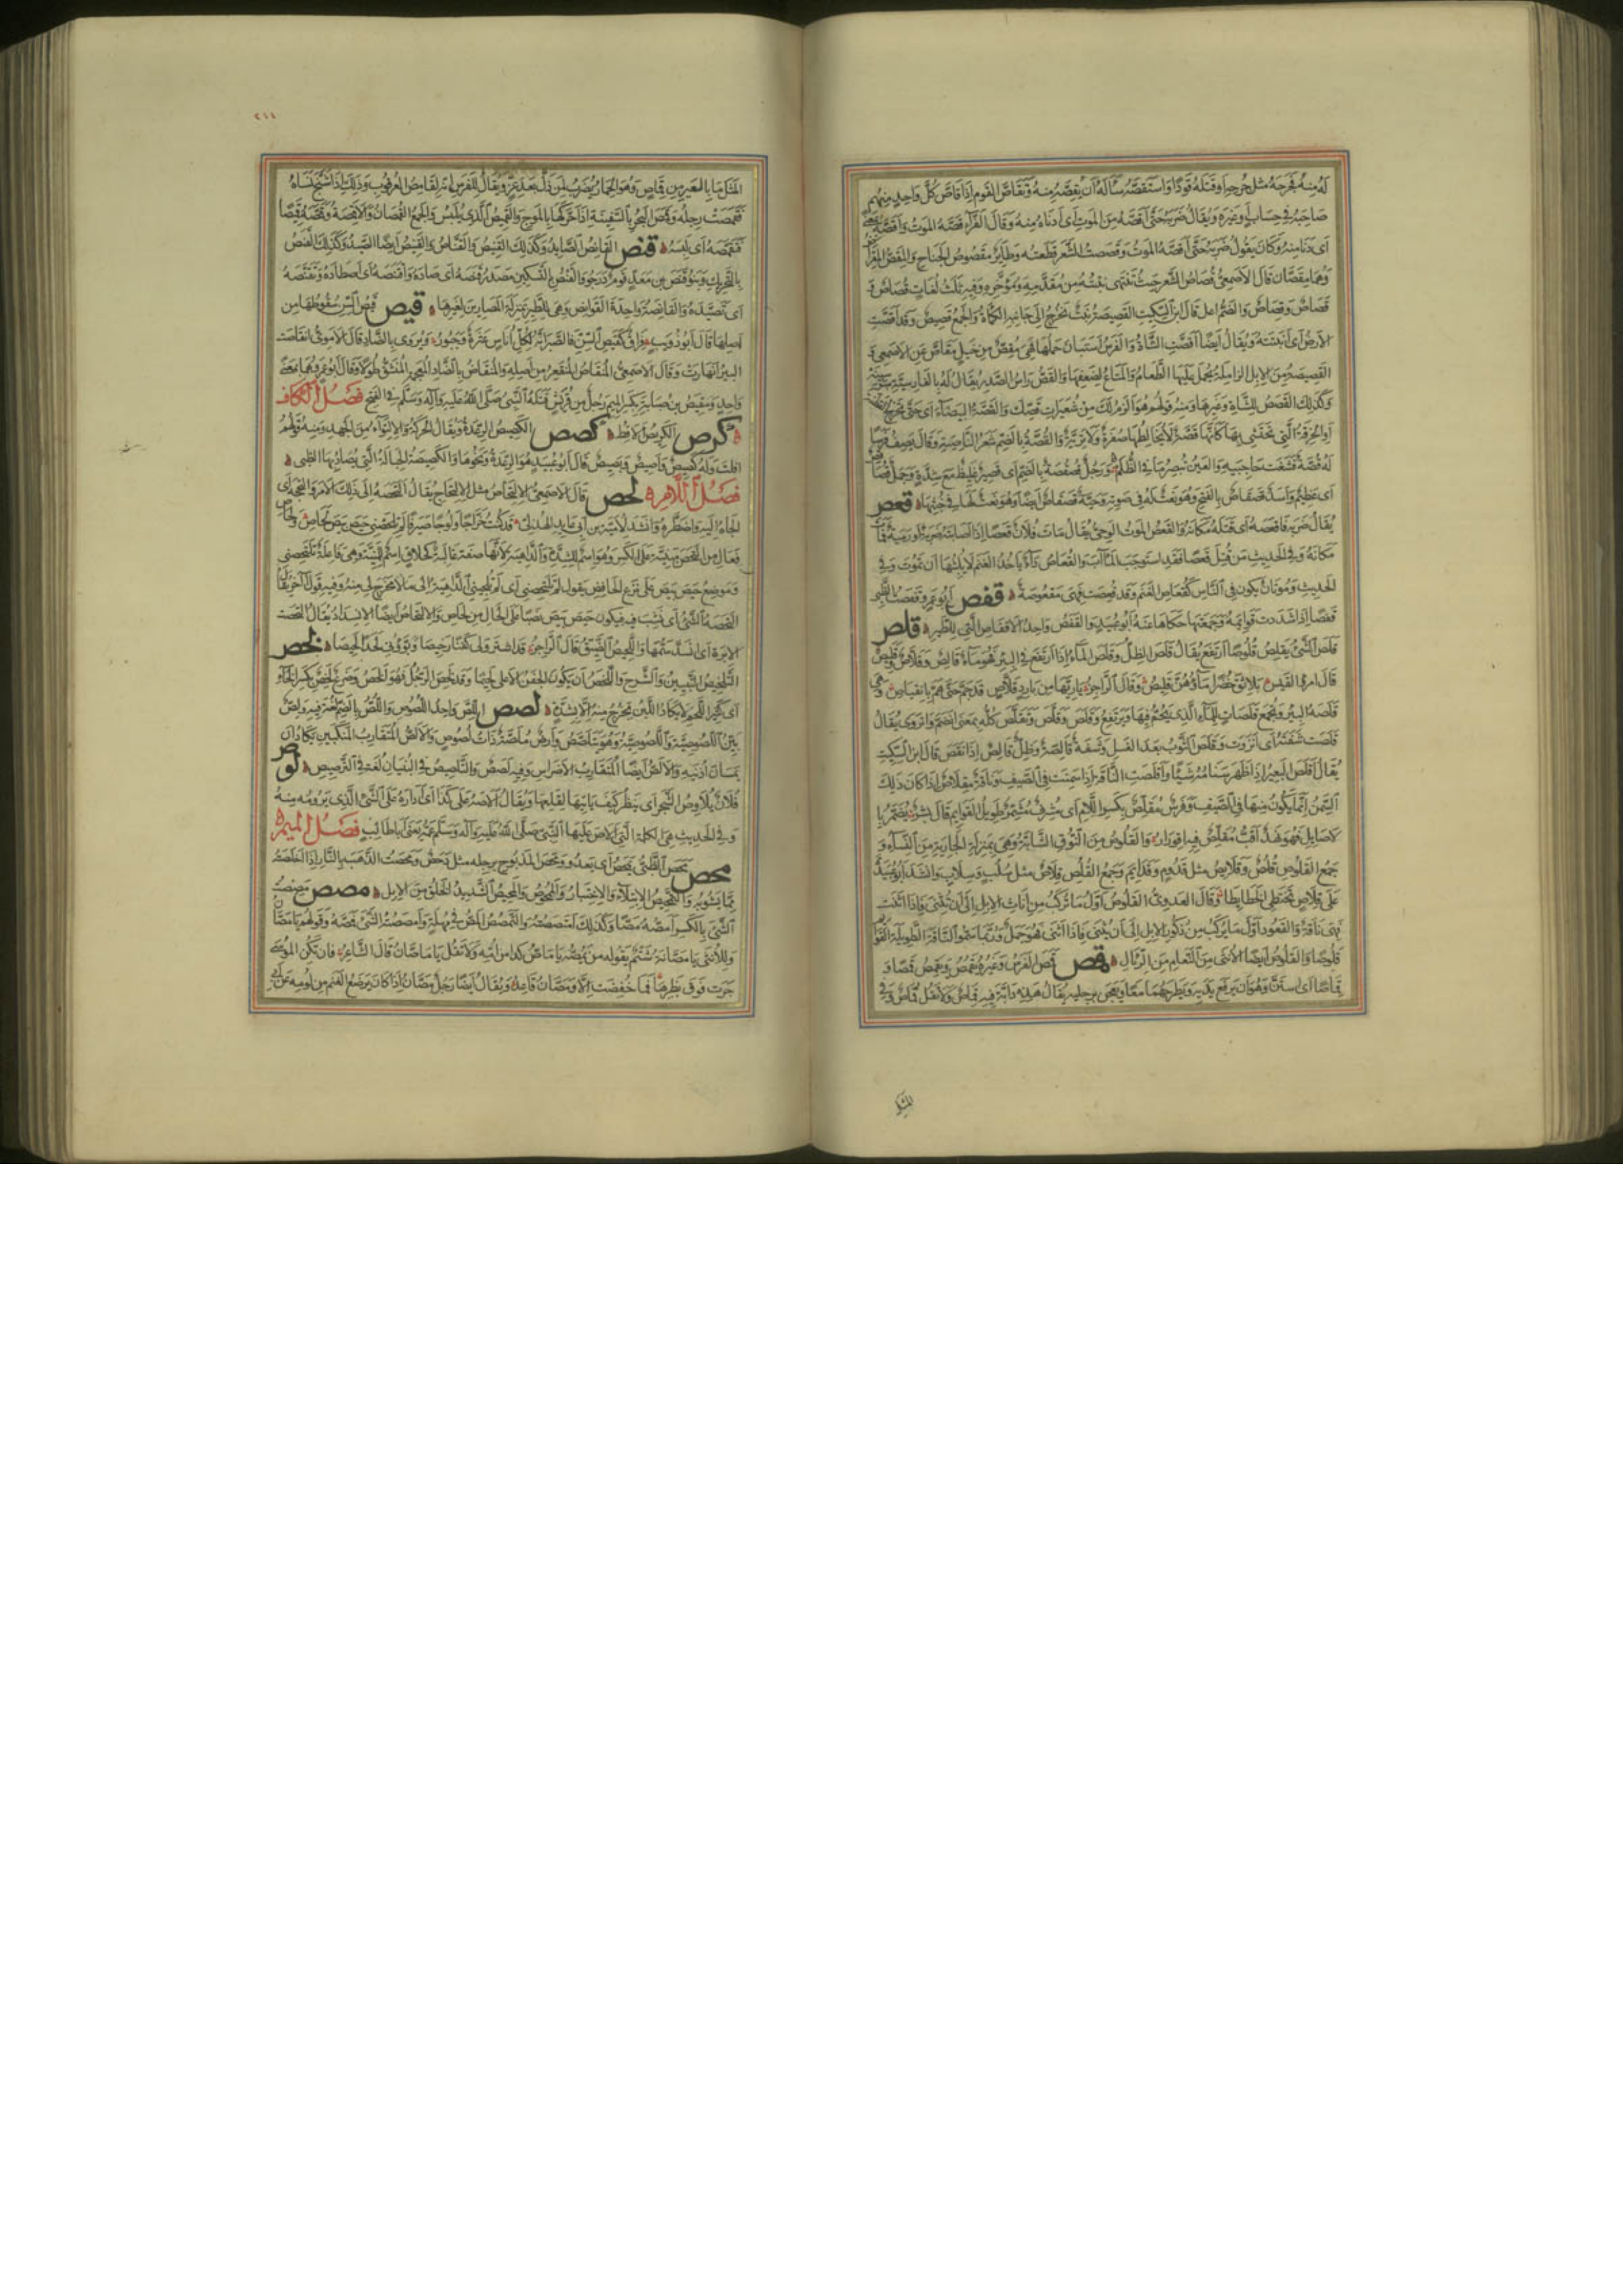 له منه فجرحه مثل جرحه او قتله قودا واستقصه سأله ان يقصه منه وتقاص القوم اذا قاص كل واحد منهم
صاحبه في حساب او غيره ويقال ضربه حتى اقصه من الموت اى ادناه منه وقال الفراء قصه الموت واقصه بمعنى
اى دنا منه وكان يقول ضربه حتى اقصه الموت وقصصت الشعر قطعته وطاير مقصوص الجناح والمقص المقراض
وهما مقصان قال الاصمعى قصاص الشعر حيث تنتهى نبتته من مقدمه ومؤخره وفيه ثلث لغات قصاص و
قصاص وقصاص والضم اعلى قال ابن السكيت القصيصة نبت يخرج الى جانبه الكمأة والجمع قصيص وقد اقصت
الارض اى انبتته ويقال ايضا اقصت الشاة والفرس استبان حملها فهى مقص من خيل مقاص عن الاصمعى و
القصيصة من الابل الزاملة يحمل عليها الطعام والمتاع لضعفها والقص راس الصدر يقال له بالفارسية
وكذلك القصص للشاة وغيرها ومنه قولهم هو الزم لك من شعيرات قصك والقصة البيضاء اى حتى تخرج القطنة
او الخرقة التى تحتشى بها كانها قصة لا يخالطها صفرة ولا ترية والقصة بالضم شعر الناصية وقال يصف فرسا
له قصة فشغت حاجبيه والعين تبصر ما في الظلم ورجل قصقصة بالضم اى قصير غليظ مع شدة وجمل قصاقص
اى عظيم واسد قصقاص بالفتح وهو نعت له في صوته وحية قصقاص ايضا وهو نعت لها في خبثها قعص
يقال ضربه فاقعصه اى قتله مكانه والقعص الموت الوحى يقال مات فلان قعصا اذا اصابته ضربة او رمية فمات
مكانه وفي الحديث من قتل قعصا فقد استوجب المآب والقعاص داء ياخذ الغنم لا يلبثها ان تموت وفي
الحديث وموتان يكون في الناس كقعاص الغنم وقد قعصت فهى مقعوصة قفص ابو عمرو قفصت الظبى
قفصا اذا شددت قوائمه وجمعتها حكاها عنه ابو عبيد والقفص واحد الاقفاص التى للطير قلص
قلص الشئ يقلص قلوصا ارتفع يقال قلص الظل وقلص الماء اذا ارتفع في البئر فهو ماء قالص وقلاص وقليص
قال امرؤ القيس بلاثق خضرا ماؤهن قليص وقال الراجز يا ريها من بارد قلاص قد جم حتى هم بانقياص وهى
قلصة البئر وتجمع قلصات للماء الذى يجم فيها ويرتفع وقلص وقلص وتقلص كله بمعنى انضم وانزوى يقال
قلصت شفته اى انزوت وقلص الثوب بعد الغسل وشفة قالصة وظل قالص اذا نقص قال ابن السكيت
يقال اقلص البعير اذا ظهر سنامه شيئا واقلصت الناقة اذا سمنت في الصيف وناقة مقلاص اذا كان ذلك
السمن انما يكون منها في الصيف وفرس مقلص بكسر اللام اى مشرف مشمر طويل القوايم قال بشر يضمر با
لاصايل فهو نهد اقب مقلص فيه اقورار والقلوص من النوق الشابة وهى بمنزلة الجارية من النساء و
جمع القلوص قلص وقلايص مثل قدوم وقدايم وجمع القلص قلاص مثل سلب وسلاب وانشد ابو عبيدة
على قلاص تختطى الخطائطا وقال العدوى القلوص اول ما يركب من اناث الابل الى ان تثنى فاذا اثنت
فهى ناقة والقعود اول ما يركب من ذكور الابل الى ان يثنى فاذا اثنى فهو جمل وربما سموا الناقة الطويلة القوايم
قلوصا والقلوص ايضا الانثى من النعام من الرئال قمص قمص الفرس وغيره يقمص ويقمص قمصا و
قماصا اى استن وهو ان يرفع يديه ويطرحهما معا ويعجن برجليه يقال هذه دابة فيه قماص ولا تقل قماص وفي
المثل
٢١١
المثل ما بالعير من قماص وهو الحمار يضرب لمن ذل بعد عز ويقال للفرس انه لقامص العرقوب وذلك اذا شنج نساه
فقمصت رجله وقمص البحر بالسفينة اذا حركها بالموج والقميص الذى يلبس والجمع القمصان والاقمصة وقمصه قميصا
فتقمصه اى لبسه قنص القانص الصايد وكذلك القنيص والقناص والقنيص ايضا الصيد وكذلك القنص
بالتحريك وبنو قنص بن معد قوم درجوا والقنص بالتسكين مصدر قنصه اى صاده واقتنصه اى اصطاده وتقنصه
اى تصيده والقانصة واحدة القوانص وهى للطير بمنزلة المصارين لغيرها قيص قيص السن سقوطها من
اصلها قال ابو ذؤيب فراق كقيص السن فالصبر انه لكل اناس عثرة وجبور ويروى بالضاد قال الاموى انقاصت
البئر انهارت وقال الاصمعى المنقاص المنقعر من اصله والمنقاض بالضاد المعجمة المنشق طولا وقال ابو عمرو هما بمعنى
واحد ومقيص بن صبابة بكسر الميم رجل من قريش قتله النبى صلى الله عليه وآله وسلم في الفتح فصل الكاف
كرص الكريص الاقط كصص الكصيص الرعدة ويقال الحركة والالتواء من الجهد ومنه قولهم
افلت وله كصيص واصيص وبصيص قال ابو عبيد هو الرعدة ونحوها والكصيصة الحبالة التى يصاد بها الظبى
فصل اللام لحص قال الاصمعى الالتحاص مثل الالتحاج يقال التحصه الى ذلك الامر والتحجه اى
الجاه اليه واضطره وانشد لامية بن ابى عايذ الهذلى قد كنت خراجا ولوجا صيرفا لم تلتحصنى حيص بيص لحاص ولحاص
فعال من التحص مبنية على الكسر وهو اسم للشدة والداهية لانها صفة غالبة كحلاق اسم للمنية وهى فاعلة تلتحصنى
وموضع حيص بيص على نزع الخافض يقول لم تلتحصنى اى لم تلجئنى الداهية الى ما لا مخرج لى منه وفيه قول آخر يقال
التحصه الشئ اى نشب فيه فيكون حيص بيص نصبا على الحال من لحاص والالتحاص ايضا الانسداد يقال التحصت
الابرة اى انسد سمها واللحيص الضيق قال الراجز قد اشتروا لى كفنا رخيصا وبوؤنى لحدا لحيصا لخص
التلخيص التبيين والشرح واللخص ان يكون الجفن الاعلى لحيما وقد لخص الرجل فهو الخص وضرع لخص بكسر الخاء
اى كثير اللحم لا يكاد اللبن يخرج منه الا بشدة لصص اللص واحد اللصوص واللص بالضم لغة فيه ولص
بين اللصوصية واللصوصية وهو يتلصص وارض ملصة ذات لصوص والالص المتقارب المنكبين يكادان
يمسان اذنيه والالص ايضا المتقارب الاضراس وفيه لصص والتلصيص في البنيان لغة في الترصيص لوص
فلان يلاوص الشجر اى ينظر كيف ياتيها لقلعها ويقال الاصه على كذا اى اداره على الشئ الذى يرومه منه
وفي الحديث هى الكلمة التى الاص عليها النبى صلى الله عليه وآله وسلم عمه يعنى ابا طالب فصل الميم
محص محص الظبى يمحص اى يعدو ومحص المذبوح برجله مثل دحص ومحصت الذهب بالنار اذا اخلصته
مما يشوبه والتمحيص الابتلاء والاختبار والممحوص والمحيص الشديد الخلق من الابل مصص مصصت
الشئ بالكسر امصه مصا وكذلك امتصصته والتمصص المص في مهلة وامصصته الشئ فمصه وقولهم يا مصان
وللانثى يا مصانة شتم يقوله من يمصه يا ماص كذا من امه ولا تقل يا ماصان قال الشاعر فان تكن الموسى
جرت فوق بظرها فما خفضت الا ومصان قاعد ويقال ايضا رجل مصان اذا كان يرضع الغنم من لومه عن ابى